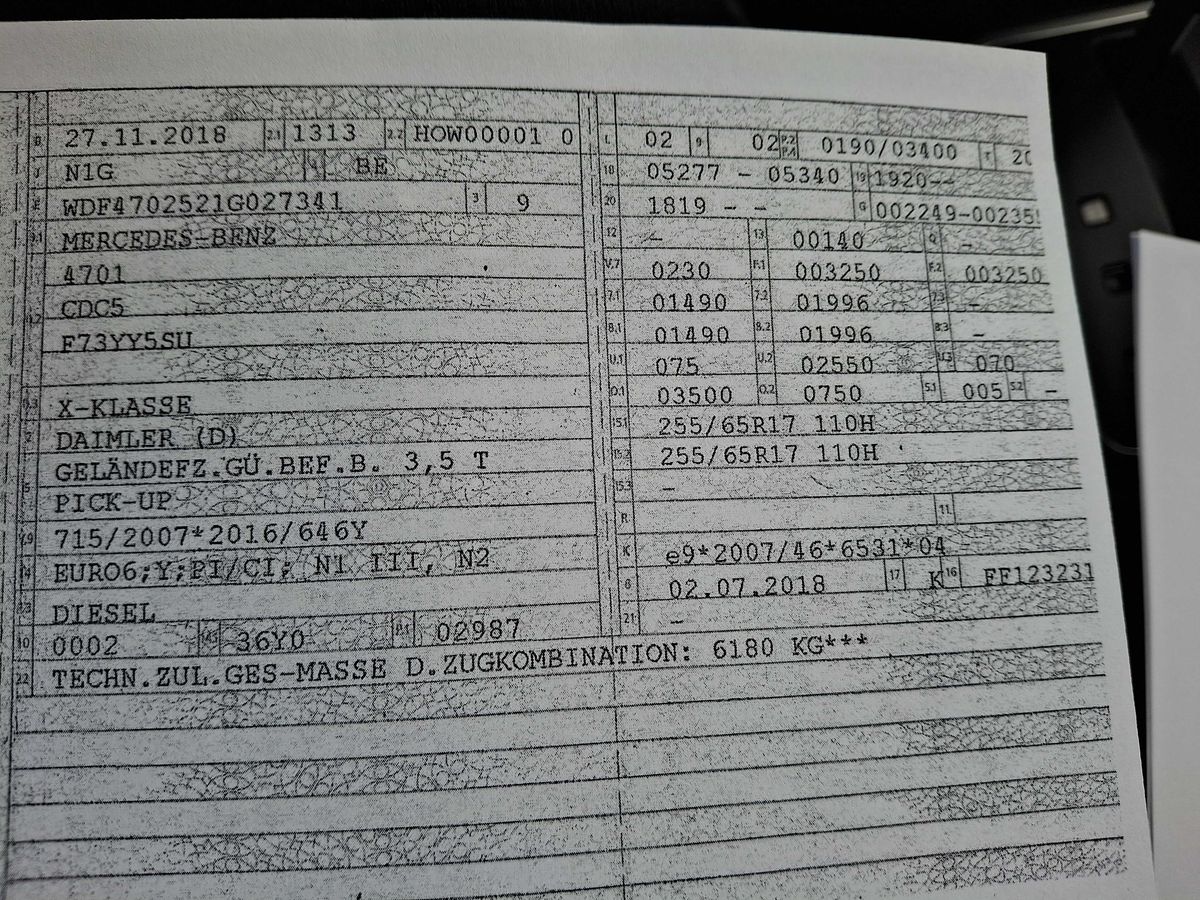 B 27.11.2018 2.1 1313 2.2 HOW00001 0
J N1G 4 BE
E WDF4702521G027341 3 9
D.1 MERCEDES-BENZ
4701
D.2 CDC5
F73YY5SU
D.3 X-KLASSE
2 DAIMLER (D)
GELÄNDEFZ.GÜ.BEF.B. 3,5 T
5 PICK-UP
V.9 715/2007*2016/646Y
14 EURO6;Y;PI/CI; N1 III, N2
P.3 DIESEL
10 0002 14.1 36Y0 P.1 02987
22 TECHN.ZUL.GES-MASSE D.ZUGKOMBINATION: 6180 KG***
L 02 9 02 P.2 P.4 0190/03400 T
18 05277 - 05340 19 1920--
20 1819 - - G 002249-00235
12 - 13 00140 Q -
V.7 0230 F.1 003250 F.2 003250
7.1 01490 7.2 01996 7.3 -
8.1 01490 8.2 01996 8.3 -
U.1 075 U.2 02550 U.3 070
O.1 03500 O.2 0750 S.1 005 S.2 -
15.1 255/65R17 110H
15.2 255/65R17 110H
15.3 -
R 11
K e9*2007/46*6531*04
6 02.07.2018 17 K 16 FF123231
21 -